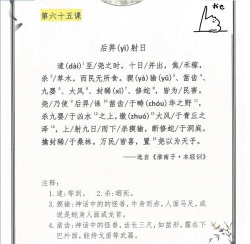 第六十五课
后羿(yì)射日
逮(dài)¹至/尧之时,十日/并出,焦/禾稼,
杀²/草木,而民无所食。猰(yà)貐(yǔ)³、凿齿⁴、
九婴⁵、大风⁶、封豨(xī)⁷、修蛇⁸,皆为/民害。
尧/乃使⁹后羿/诛¹⁰凿齿/于畴(chóu)华之野¹¹,
杀九婴/于凶水¹²之上,缴(zhuó)¹³大风/于青丘之
泽¹⁴,上/射九日/而下/杀猰貐,断修蛇/于洞庭,
擒封豨/于桑林。万民/皆喜,置¹⁵尧以为天子。
——选自《淮南子·本经训》
注释:
1.逮:等到。 2.杀:晒死。
3.猰貐:神话中的怪兽,牛身而赤,人面马足,或
说是蛇身人面或龙首。
4.凿齿:神话中的怪兽,齿长三尺,如凿形,露在下
巴外面,能持戈盾等武器。